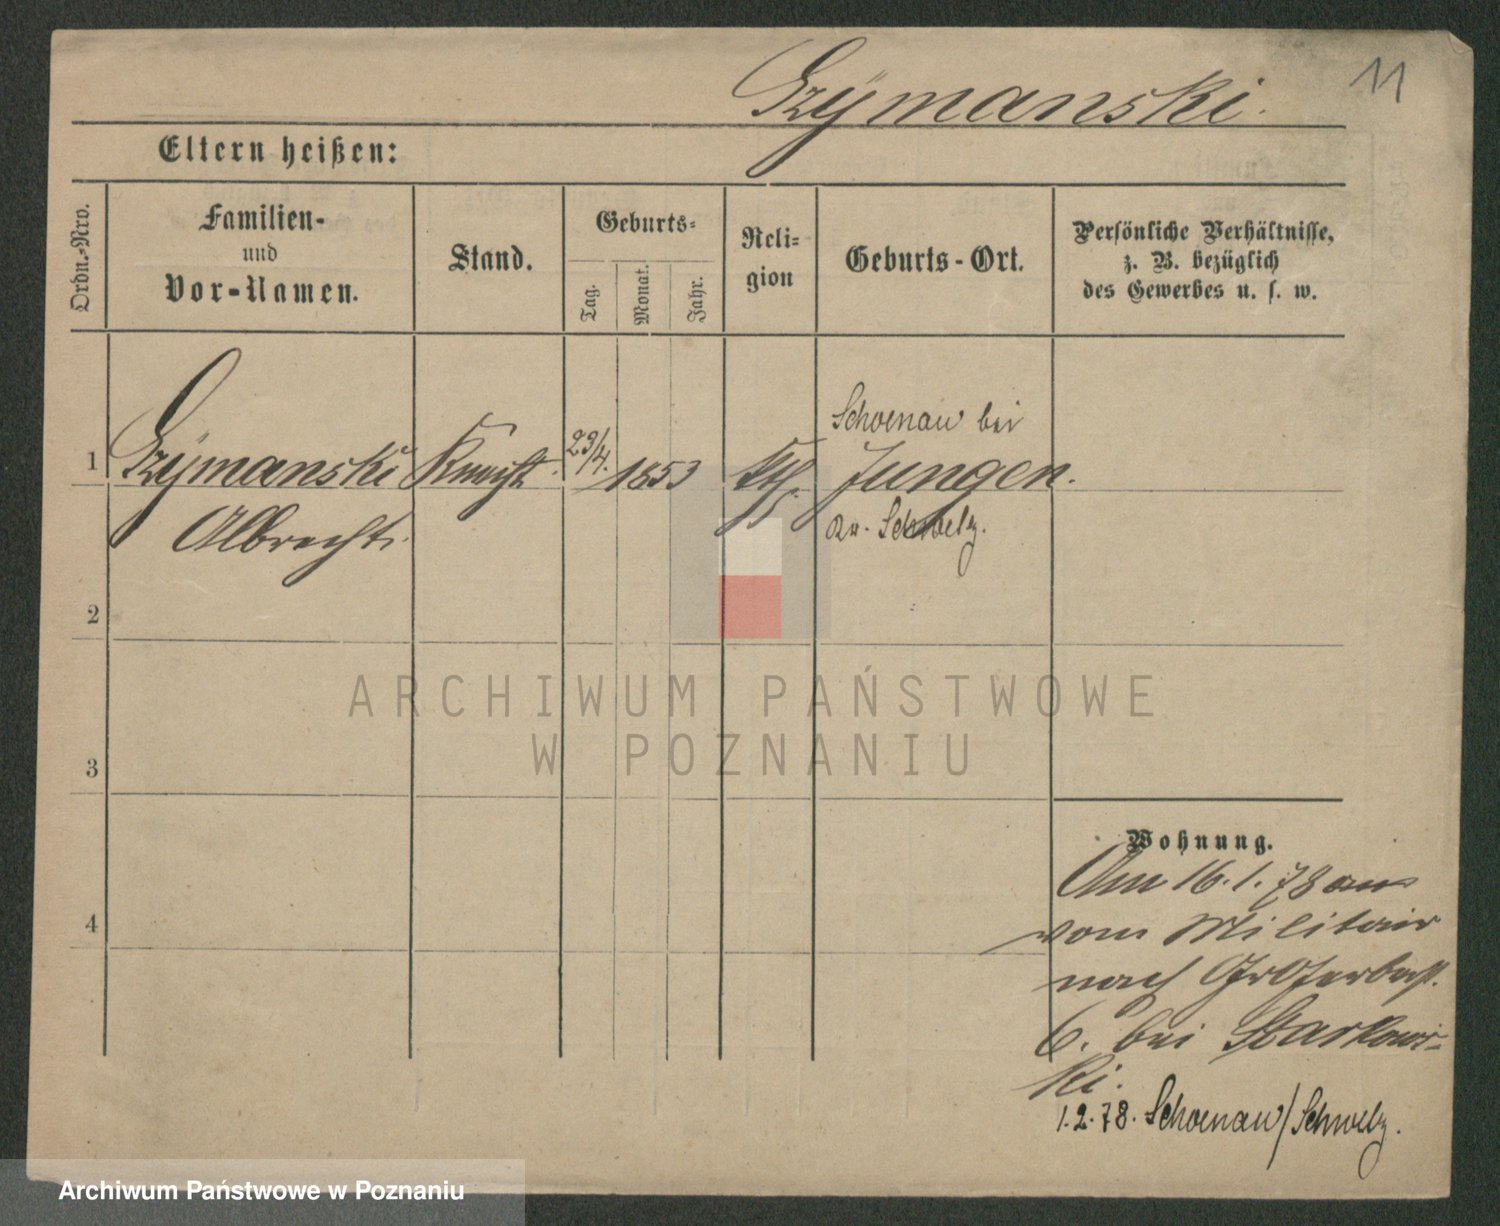 11
Szymanski.
Eltern heißen:
Ordn.-Nro.
Familien-
und
Vor-Namen.
Stand.
Geburts-
Tag.
Monat.
Jahr.
Reli-
gion
Geburts-Ort.
Persönliche Verhältnisse,
z. B. bezüglich
des Gewerbes u. s. w.
1
Szymanski Knecht. 23/4. 1853 kth. Schoenau bei
Jungen.
Albrecht. Kr. Schwetz.
2
3
4
ARCHIWUM PAŃSTWOWE
W POZNANIU
Wohnung.
Am 16.1.78 aus
vom Militair
nach Gr Gerberst.
6. bei Starkows-
ki.
1.2.78. Schoenau/Schwetz.
Archiwum Państwowe w Poznaniu